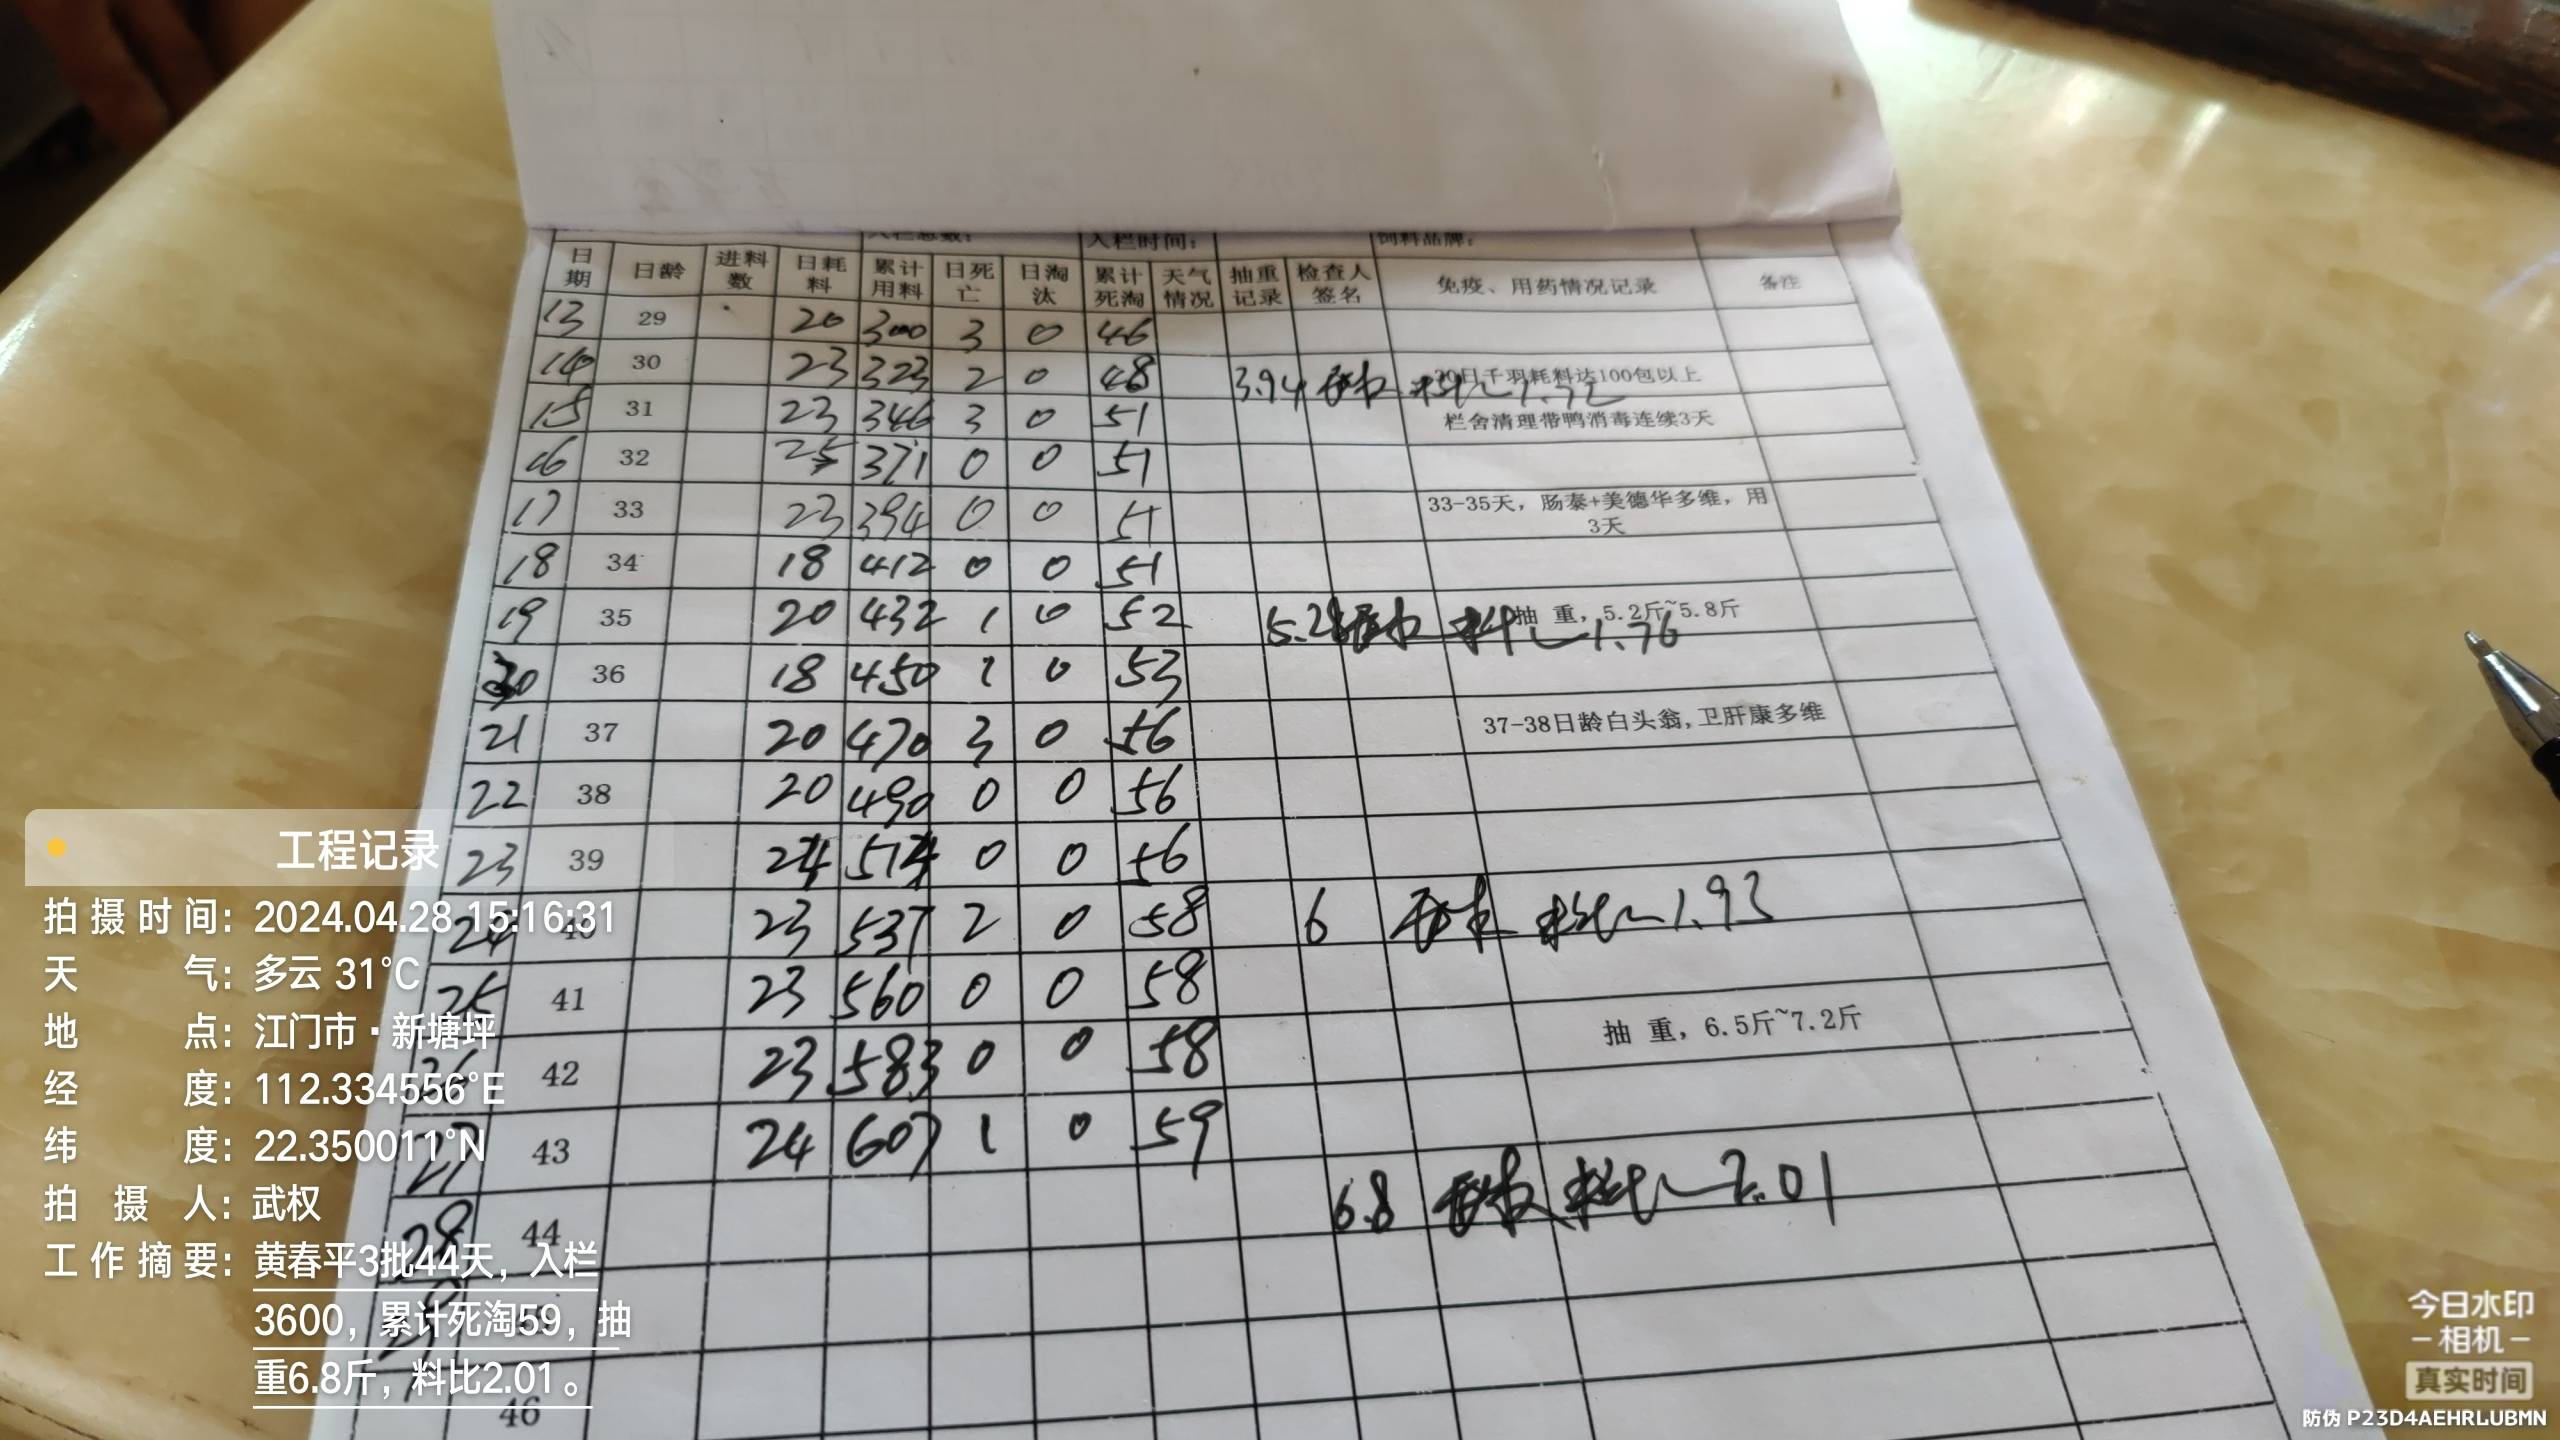 入栏总数： 入栏时间： 饲料品牌：
日期 日龄 进料数 日耗料 累计用料 日死亡 日淘汰 累计死淘 天气情况 抽重记录 检查人签名 免疫、用药情况记录 备注
13 29 20 300 3 0 46
14 30 23 323 2 0 48 3.94 30日千羽耗料达100包以上 料比 1.72
15 31 23 346 3 0 51 栏舍清理带鸭消毒连续3天
16 32 25 371 0 0 51
17 33 23 394 0 0 51 33-35天，肠泰+美德华多维，用3天
18 34 18 412 0 0 51
19 35 20 432 1 0 52 5.28 抽 重，5.2斤~5.8斤 料比 1.76
20 36 18 450 1 0 53
21 37 20 470 3 0 56 37-38日龄白头翁,卫肝康多维
22 38 20 490 0 0 56
23 39 24 514 0 0 56
24 40 23 537 2 0 58 6 料比 1.93
25 41 23 560 0 0 58
26 42 23 583 0 0 58 抽 重，6.5斤~7.2斤
27 43 24 607 1 0 59
28 44 6.8 料比 2.01
46
工程记录
拍摄时间：2024.04.28 15:16:31
天气：多云 31°C
地点：江门市·新塘坪
经度：112.334556°E
纬度：22.350011°N
拍摄人：武权
工作摘要：黄春平3批44天，入栏
3600，累计死淘59，抽
重6.8斤，料比2.01。
今日水印
-相机-
真实时间
防伪 P23D4AEHRLUBMN